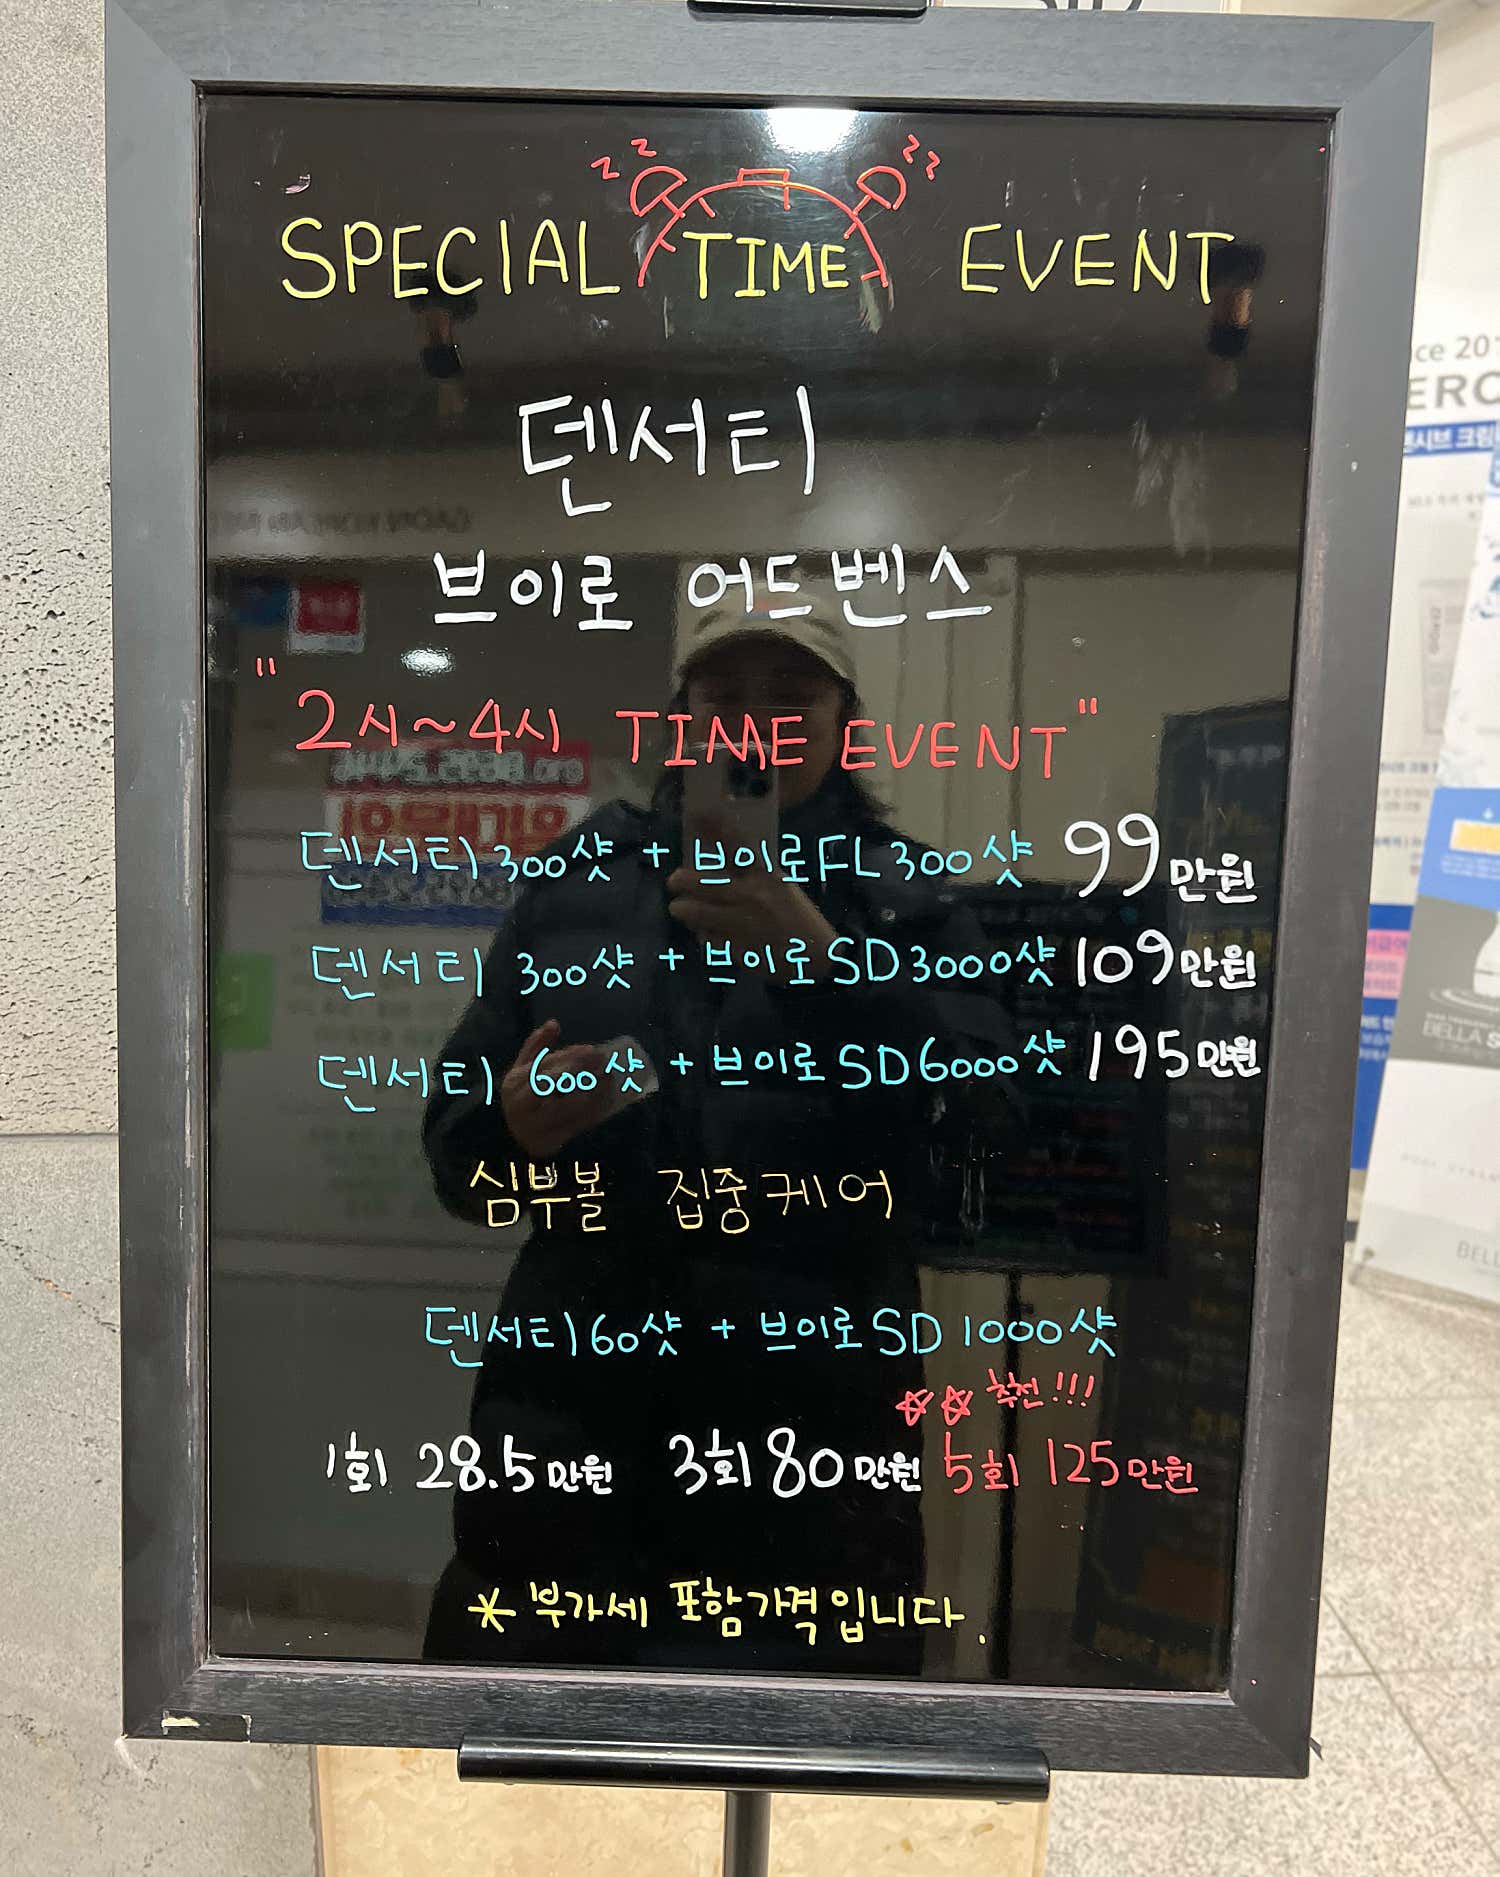 SPECIAL TIME EVENT
덴서티
브이로 어드벤스
"2시~4시 TIME EVENT"
덴서티 300샷 + 브이로FL 300샷 99만원
덴서티 300샷 + 브이로SD3000샷 109만원
덴서티 600샷 + 브이로SD6000샷 195만원
심부볼 집중케어
덴서티 60샷 + 브이로SD 1000샷
추천!!!
1회 28.5만원 3회 80만원 5회 125만원
* 부가세 포함가격입니다.
ce 201
ERO
시브 크림
BELLA
BELL